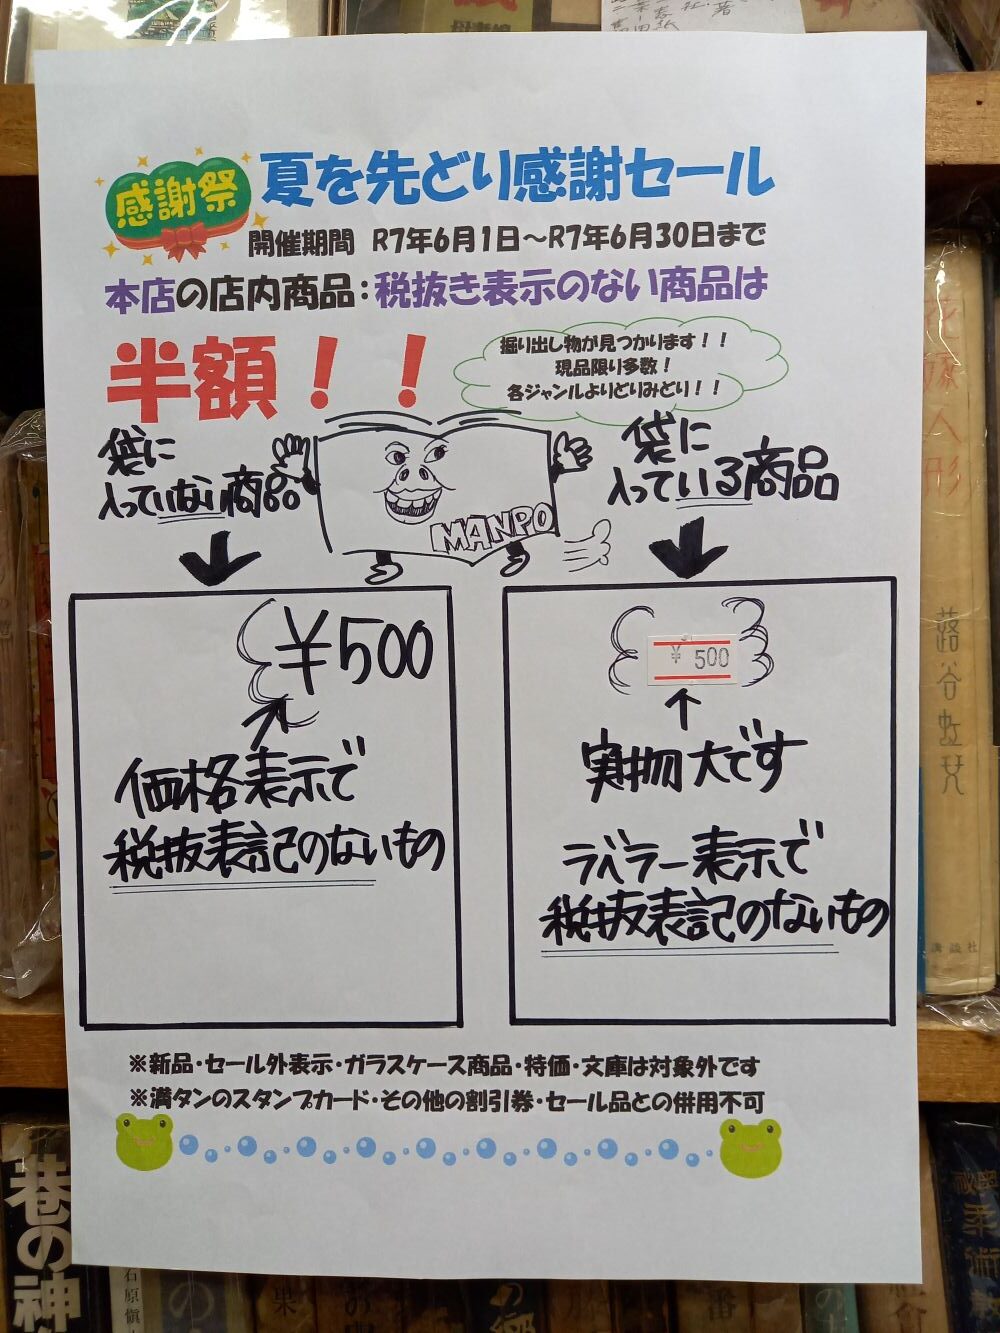 感謝祭
夏を先どり感謝セール
開催期間 R7年6月1日～R7年6月30日まで
本店の店内商品：税抜き表示のない商品は
半額！！
掘り出し物が見つかります！！
現品限り多数！
各ジャンルよりどりみどり！！
袋に
入っていない商品
MANPO
袋に
入っている商品
¥500
価格表示で
税抜表記のないもの
¥ 500
実物大です
ラベラー表示で
税抜表記のないもの
※新品・セール外表示・ガラスケース商品・特価・文庫は対象外です
※満タンのスタンプカード・その他の割引券・セール品との併用不可
人形
落谷虹児
講談社
巷の神
石原慎